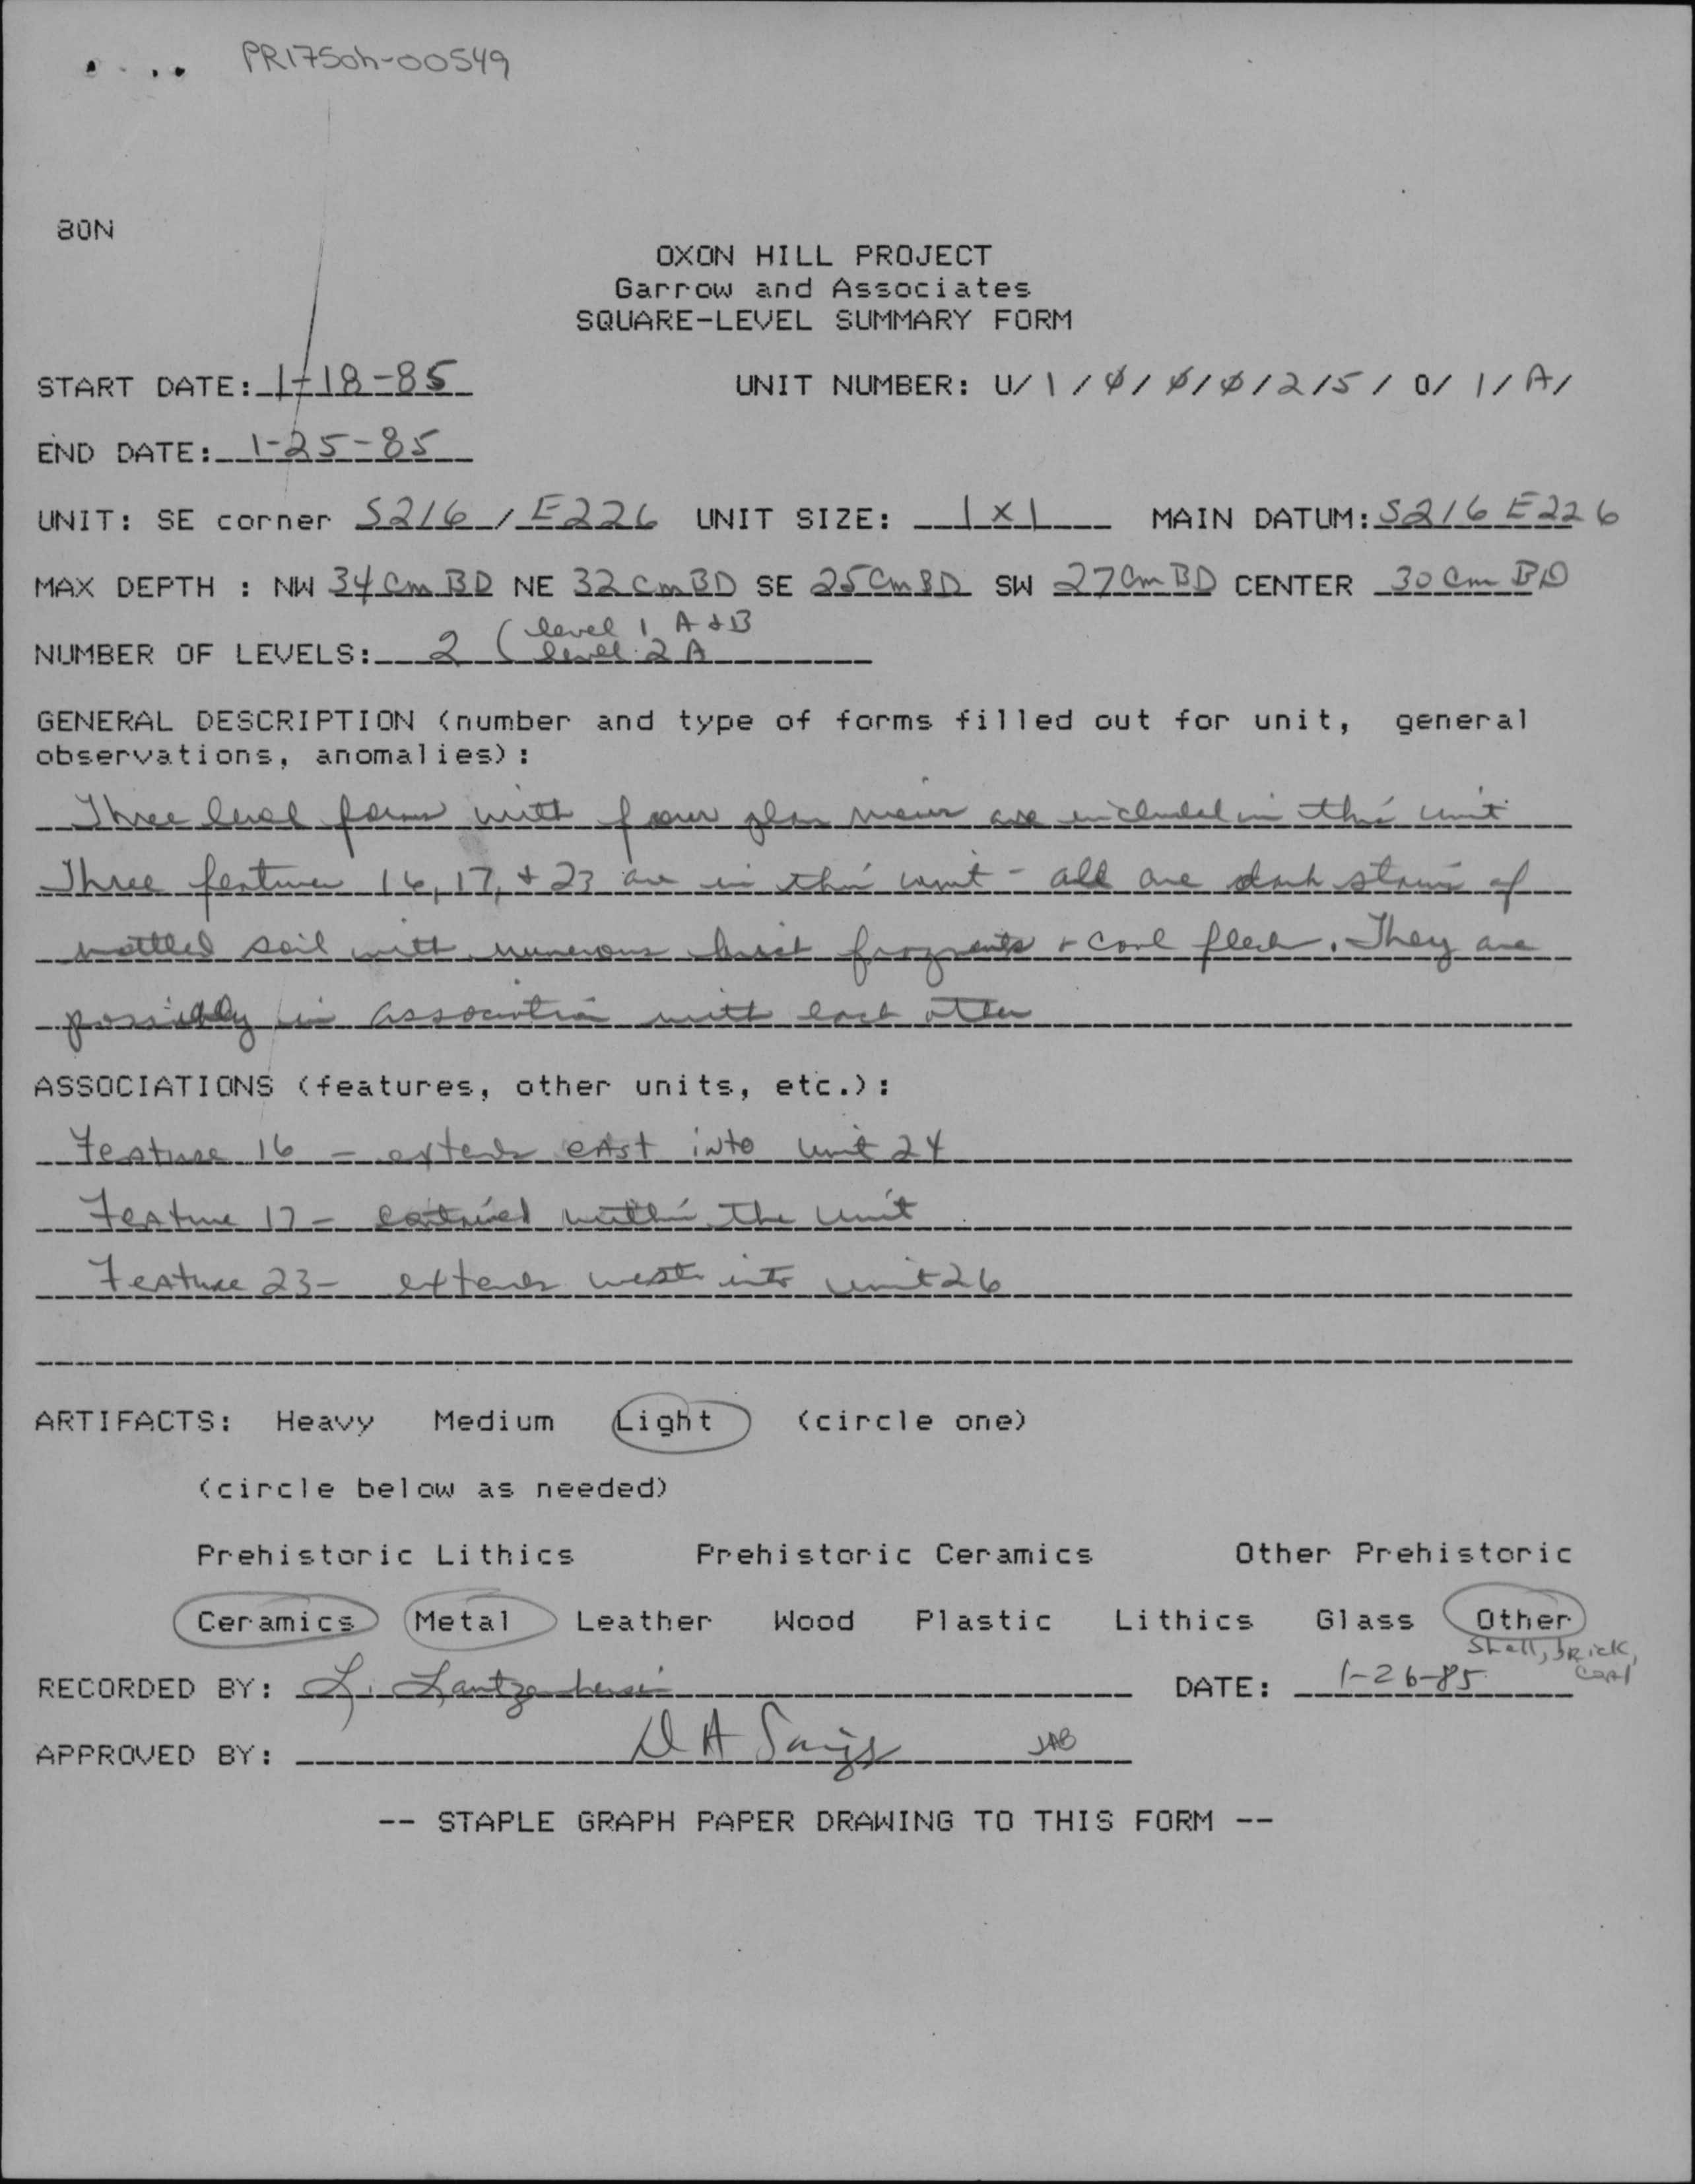 PR175Oh-00549
80N
OXON HILL PROJECT
Garrow and Associates
SQUARE-LEVEL SUMMARY FORM
START DATE: 1-18-85 UNIT NUMBER: U/ 1 / Ø / Ø / Ø / 2 / 5 / 0/ 1 / A /
END DATE: 1-25-85
UNIT: SE corner S216 / E226 UNIT SIZE: 1x1 MAIN DATUM: S216 E226
MAX DEPTH : NW 34 cm BD NE 32 cm BD SE 25 cm BD SW 27 cm BD CENTER 30 cm BD
level 1 A + B
NUMBER OF LEVELS: 2 ( level 2 A
GENERAL DESCRIPTION (number and type of forms filled out for unit, general
observations, anomalies):
Three level forms with four plan views are included in this unit
Three features 16, 17, + 23 are in this unit - all are dark stains of
mottled soil with numerous brick fragments + coal flecks. They are
possibly in association with each other
ASSOCIATIONS (features, other units, etc.):
Feature 16 - extends east into unit 24
Feature 17 - contained within the unit
Feature 23 - extends west into unit 26
ARTIFACTS: Heavy Medium Light (circle one)
(circle below as needed)
Prehistoric Lithics Prehistoric Ceramics Other Prehistoric
Ceramics Metal Leather Wood Plastic Lithics Glass Other
Shell, brick,
coal
RECORDED BY: L. DATE: 1-26-85
APPROVED BY: D A JAB
-- STAPLE GRAPH PAPER DRAWING TO THIS FORM --